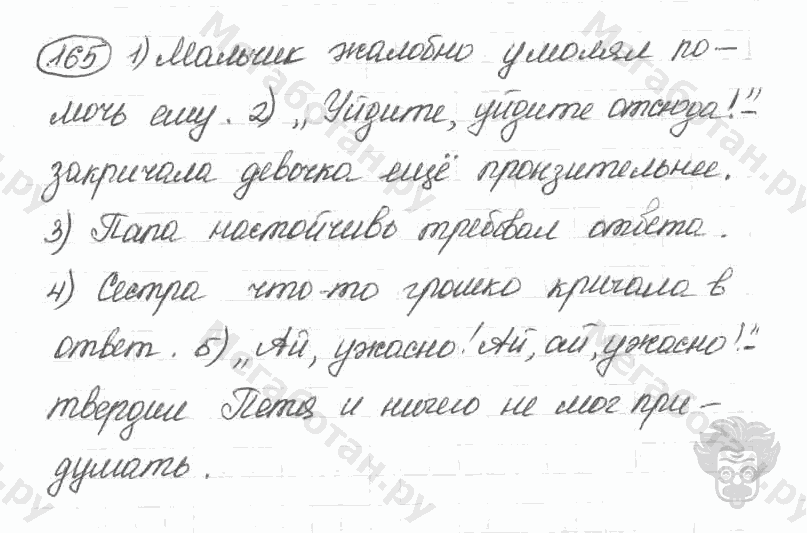 165 1) Мальчик жалобно умолял по-
мочь ему. 2) „Уйдите, уйдите отсюда!"-
закричала девочка ещё пронзительнее.
3) Папа настойчиво требовал ответа.
4) Сестра что-то громко кричала в
ответ. 5) „Ай, ужасно! Ай, ай, ужасно!"-
твердил Петя и ничего не мог при-
думать.
Мегаботан.ру